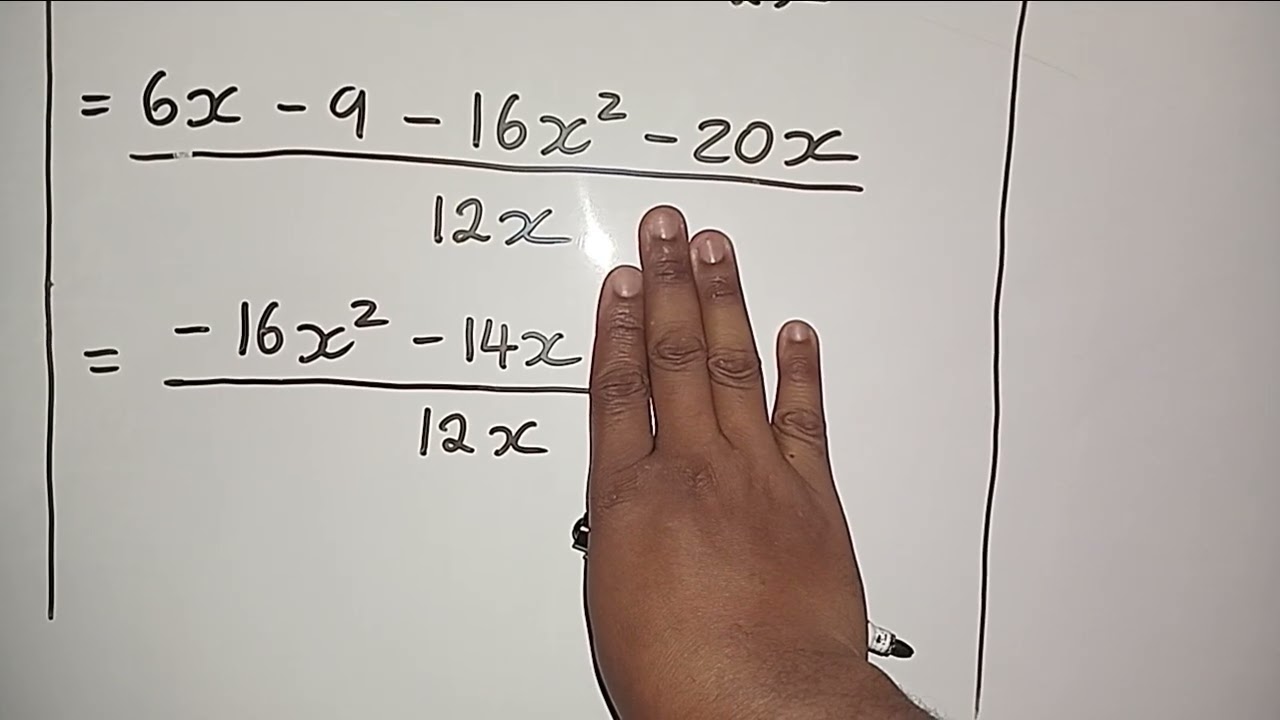 = 6x - 9 - 16x² - 20x
12x
= - 16x² - 14x
12x